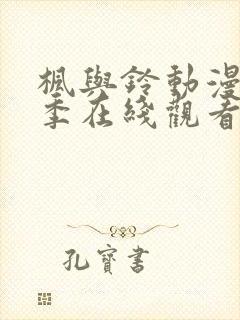 楓與鈴動漫
季在綫觀看
孔寶書